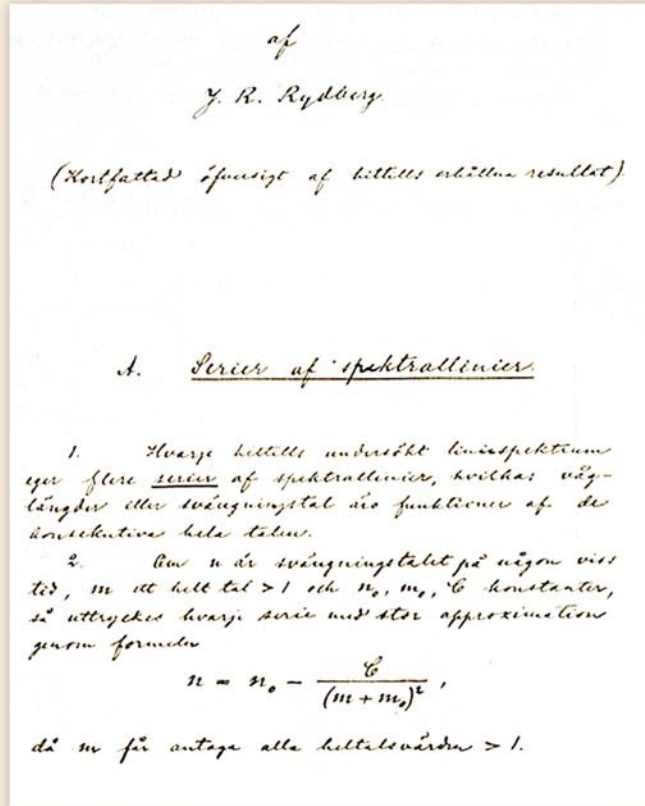 af
J. R. Rydberg
(Kortfattad öfversigt af hittills erhållna resultat)
A. Serier af spektrallinier.
1. Hvarje hittills undersökt liniespektrum
eger flere serier af spektrallinier, hvilkas våg-
längder eller svängningstal äro funktioner af de
konsekutiva hela talen.
2. Om n är svängningstalet på någon viss
tid, m ett helt tal > 1 och n₀, m₀, C konstanter,
så uttryckes hvarje serie med stor approximation
genom formeln
n = n₀ - C / (m + m₀)² ,
då m får antaga alla heltalsvärden > 1.